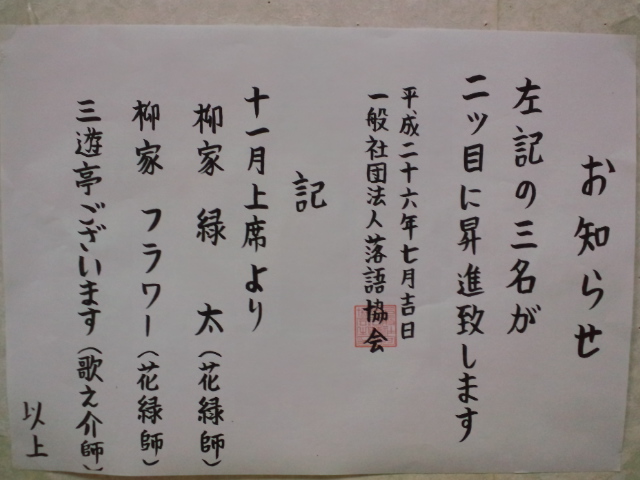 お知らせ
左記の三名が
二ツ目に昇進致します
平成二十六年七月吉日
一般社団法人落語協会
記
十一月上席より
柳家 緑 太(花緑師)
柳家 フラワー(花緑師)
三遊亭ございます(歌之介師)
以上